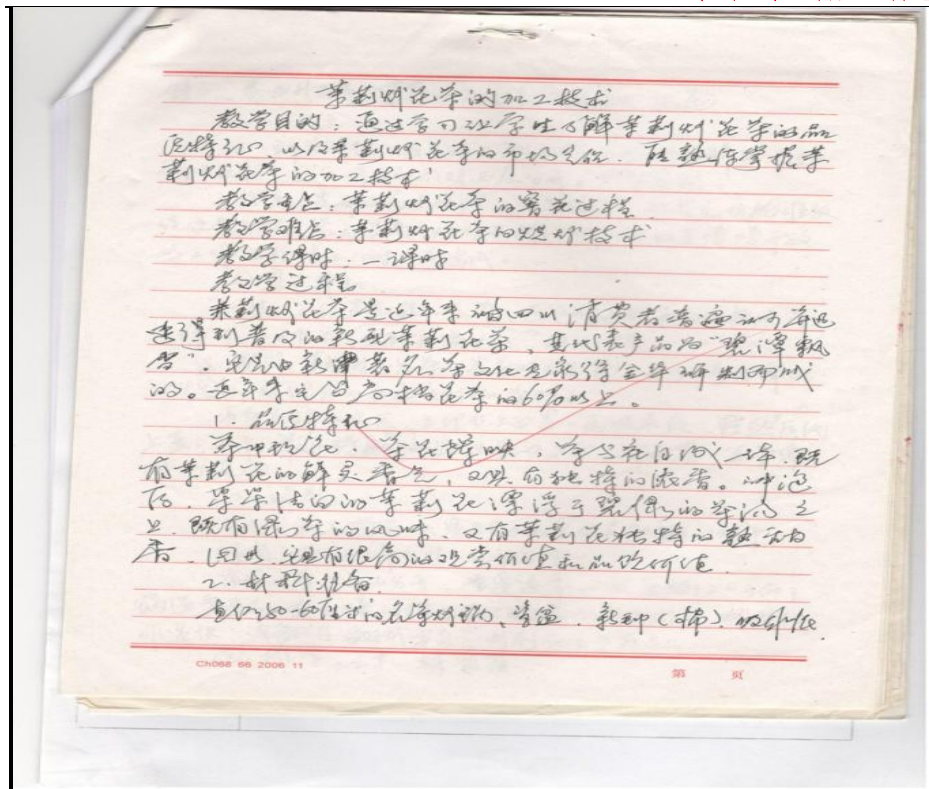 茉莉炒花茶的加工技术
教学目的：通过学习让学生了解茉莉炒花茶的品
质特征 以及茉莉炒花茶的市场，能熟练掌握茉
莉炒花茶的加工技术
教学重点：茉莉炒花茶的窨花过程
教学难点：茉莉炒花茶的烘炒技术
教学课时：一课时
教学过程
茉莉炒花茶是近年来被四川消费者普遍认可并迅
速得到普及的新型茉莉花茶，其代表产品为"碧潭飘
雪"，它是由新津著名茶文化专家徐金华研制而成
的。近年来它占高档花茶的60%以上。
1、品质特征
茶中现花、茶花辉映，茶与花自成一体，既
有茉莉花的鲜灵香气，又具有独特的浓香。冲泡
后，朵朵洁白的茉莉花漂浮于碧绿的茶汤之
上，既有绿茶的风味，又有茉莉花独特的
香，因此，它具有很高的观赏价值和品饮价值
2、材料准备
50-60 的名茶炒锅、瓷盆、
Ch068 66 2006 11
第 页